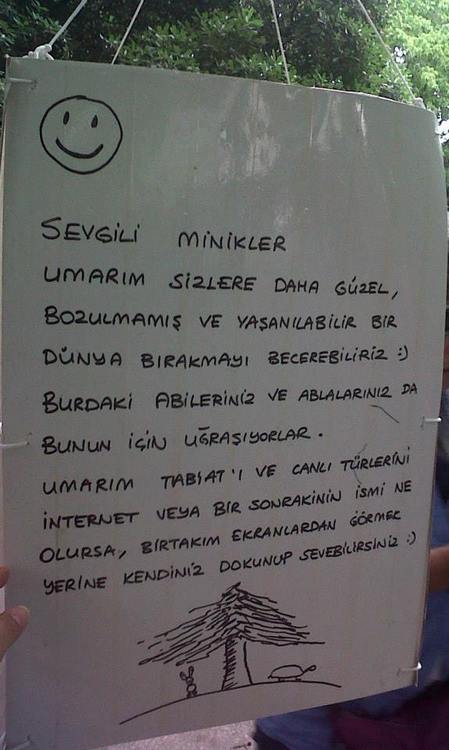 SEVGİLİ MİNİKLER
UMARIM SİZLERE DAHA GÜZEL,
BOZULMAMIŞ VE YAŞANILABİLİR BİR
DÜNYA BIRAKMAYI BECEREBİLİRİZ :)
BURDAKİ ABİLERİNİZ VE ABLALARINIZ DA
BUNUN İÇİN UĞRAŞIYORLAR.
UMARIM TABİAT'I VE CANLI TÜRLERİNİ
İNTERNET VEYA BİR SONRAKİNİN İSMİ NE
OLURSA, BİRTAKIM EKRANLARDAN GÖRMEK
YERİNE KENDİNİZ DOKUNUP SEVEBİLİRSİNİZ :)